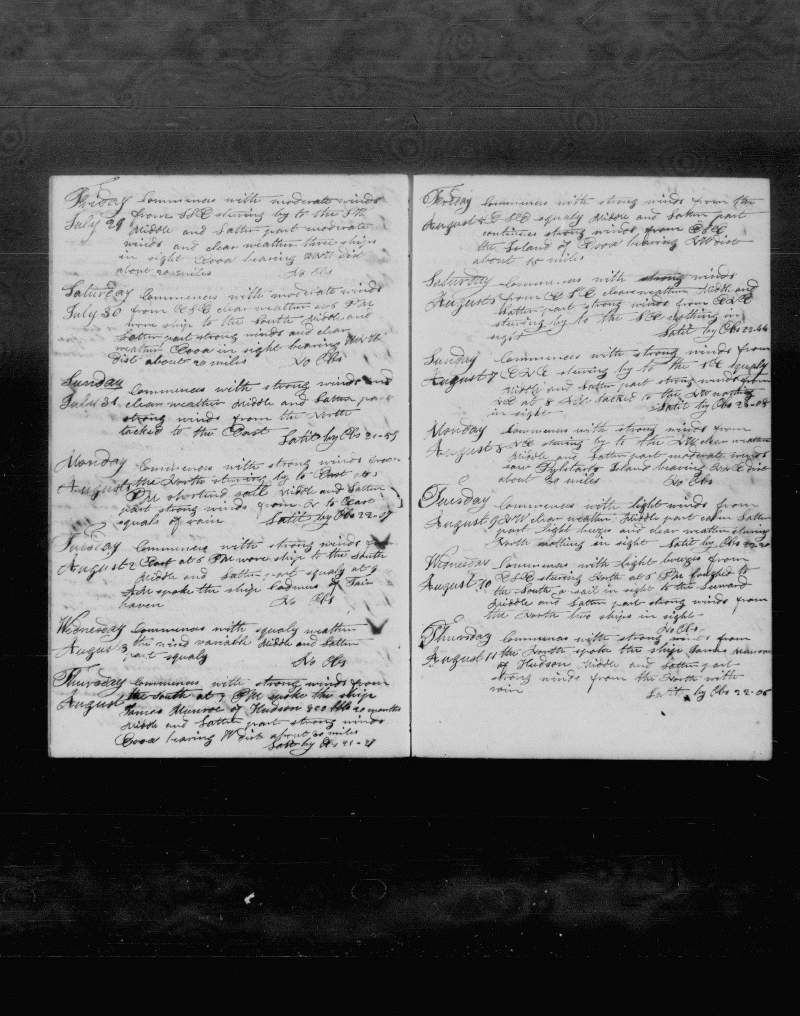 Friday Commences with moderate winds
July 29 from SSE stering by to the Sth
Middle and Latter part moderate
winds and clear weather three ships
in sight Eooa bearing WNW dist
about 20 miles No Obs
Saturday Commences with moderate winds
July 30 from ESE clear weather at 5 PM
wore ship to the South Middle and
Latter part strong winds and clear
weather Eooa in sight bearing
Dist about 20 miles No Obs
Sunday Commences with strong winds and
July 31 clear weather Middle and Latter part
strong winds from the North
tacked to the East Latit by Obs 21-55
Monday Commences with strong winds from
August 1 the North stering by to East at 5
PM shortend sail Middle and Latter
part strong winds from N to East
squals of rain Latit by Obs 22-07
Tuesday Commences with strong winds from
August 2 East at 6 PM wore ship to the South
Middle and Latter part squaly at 9
AM spoke the ship Cadmus of Fair
haven No Obs
Wednesday Commences with squaly weather
August 3 the wind variable Middle and Latter
part squaly No Obs
Thursday Commences with strong winds from
August the South at 3 PM spoke the ship
James Munroe of Hudson 800 bbls 20 months
Middle and Latter part strong winds
Eooa bearing W dist about 20 miles
Latit by Obs 21-21
Friday Commences with strong winds from the
August ESE squaly Middle and Latter part
continues strong winds from ESE
the Island of Eooa bearing NW dist
about 15 miles
Saturday Commences with strong winds
August from ESE clear weather Middle and
Latter part strong winds from ENE
stering by to the SE nothing in
sight Latit by Obs 22-44
Sunday Commences with strong winds from
August 7 ENE stering by to the SE squaly
Middle and Latter part strong winds from
NE at 8 AM tacked to the NW nothing
in sight Latit by Obs 23-08
Monday Commences with strong winds from
August 8 NE stering by to the NW clear weather
Middle and Latter part moderate winds
saw Pylstarts Island bearing dist
about 20 miles No Obs
Tuesday Commences with light winds from
August 9 NW clear weather Middle part calm Latter
part light breeze and clear weather stering
North nothing in sight Latit by Obs
Wednesday Commences with light breezes from
August 10 ESE stering North at 5 PM to
the South a sail in sight to the Leward
Middle and Latter part strong winds from
the North two ships in sight
No Obs
Thursday Commences with strong winds from
August 11 the North spoke the ship James Munroe
of Hudson Middle and Latter part
strong winds from the North with
rain Latit by Obs 22-06